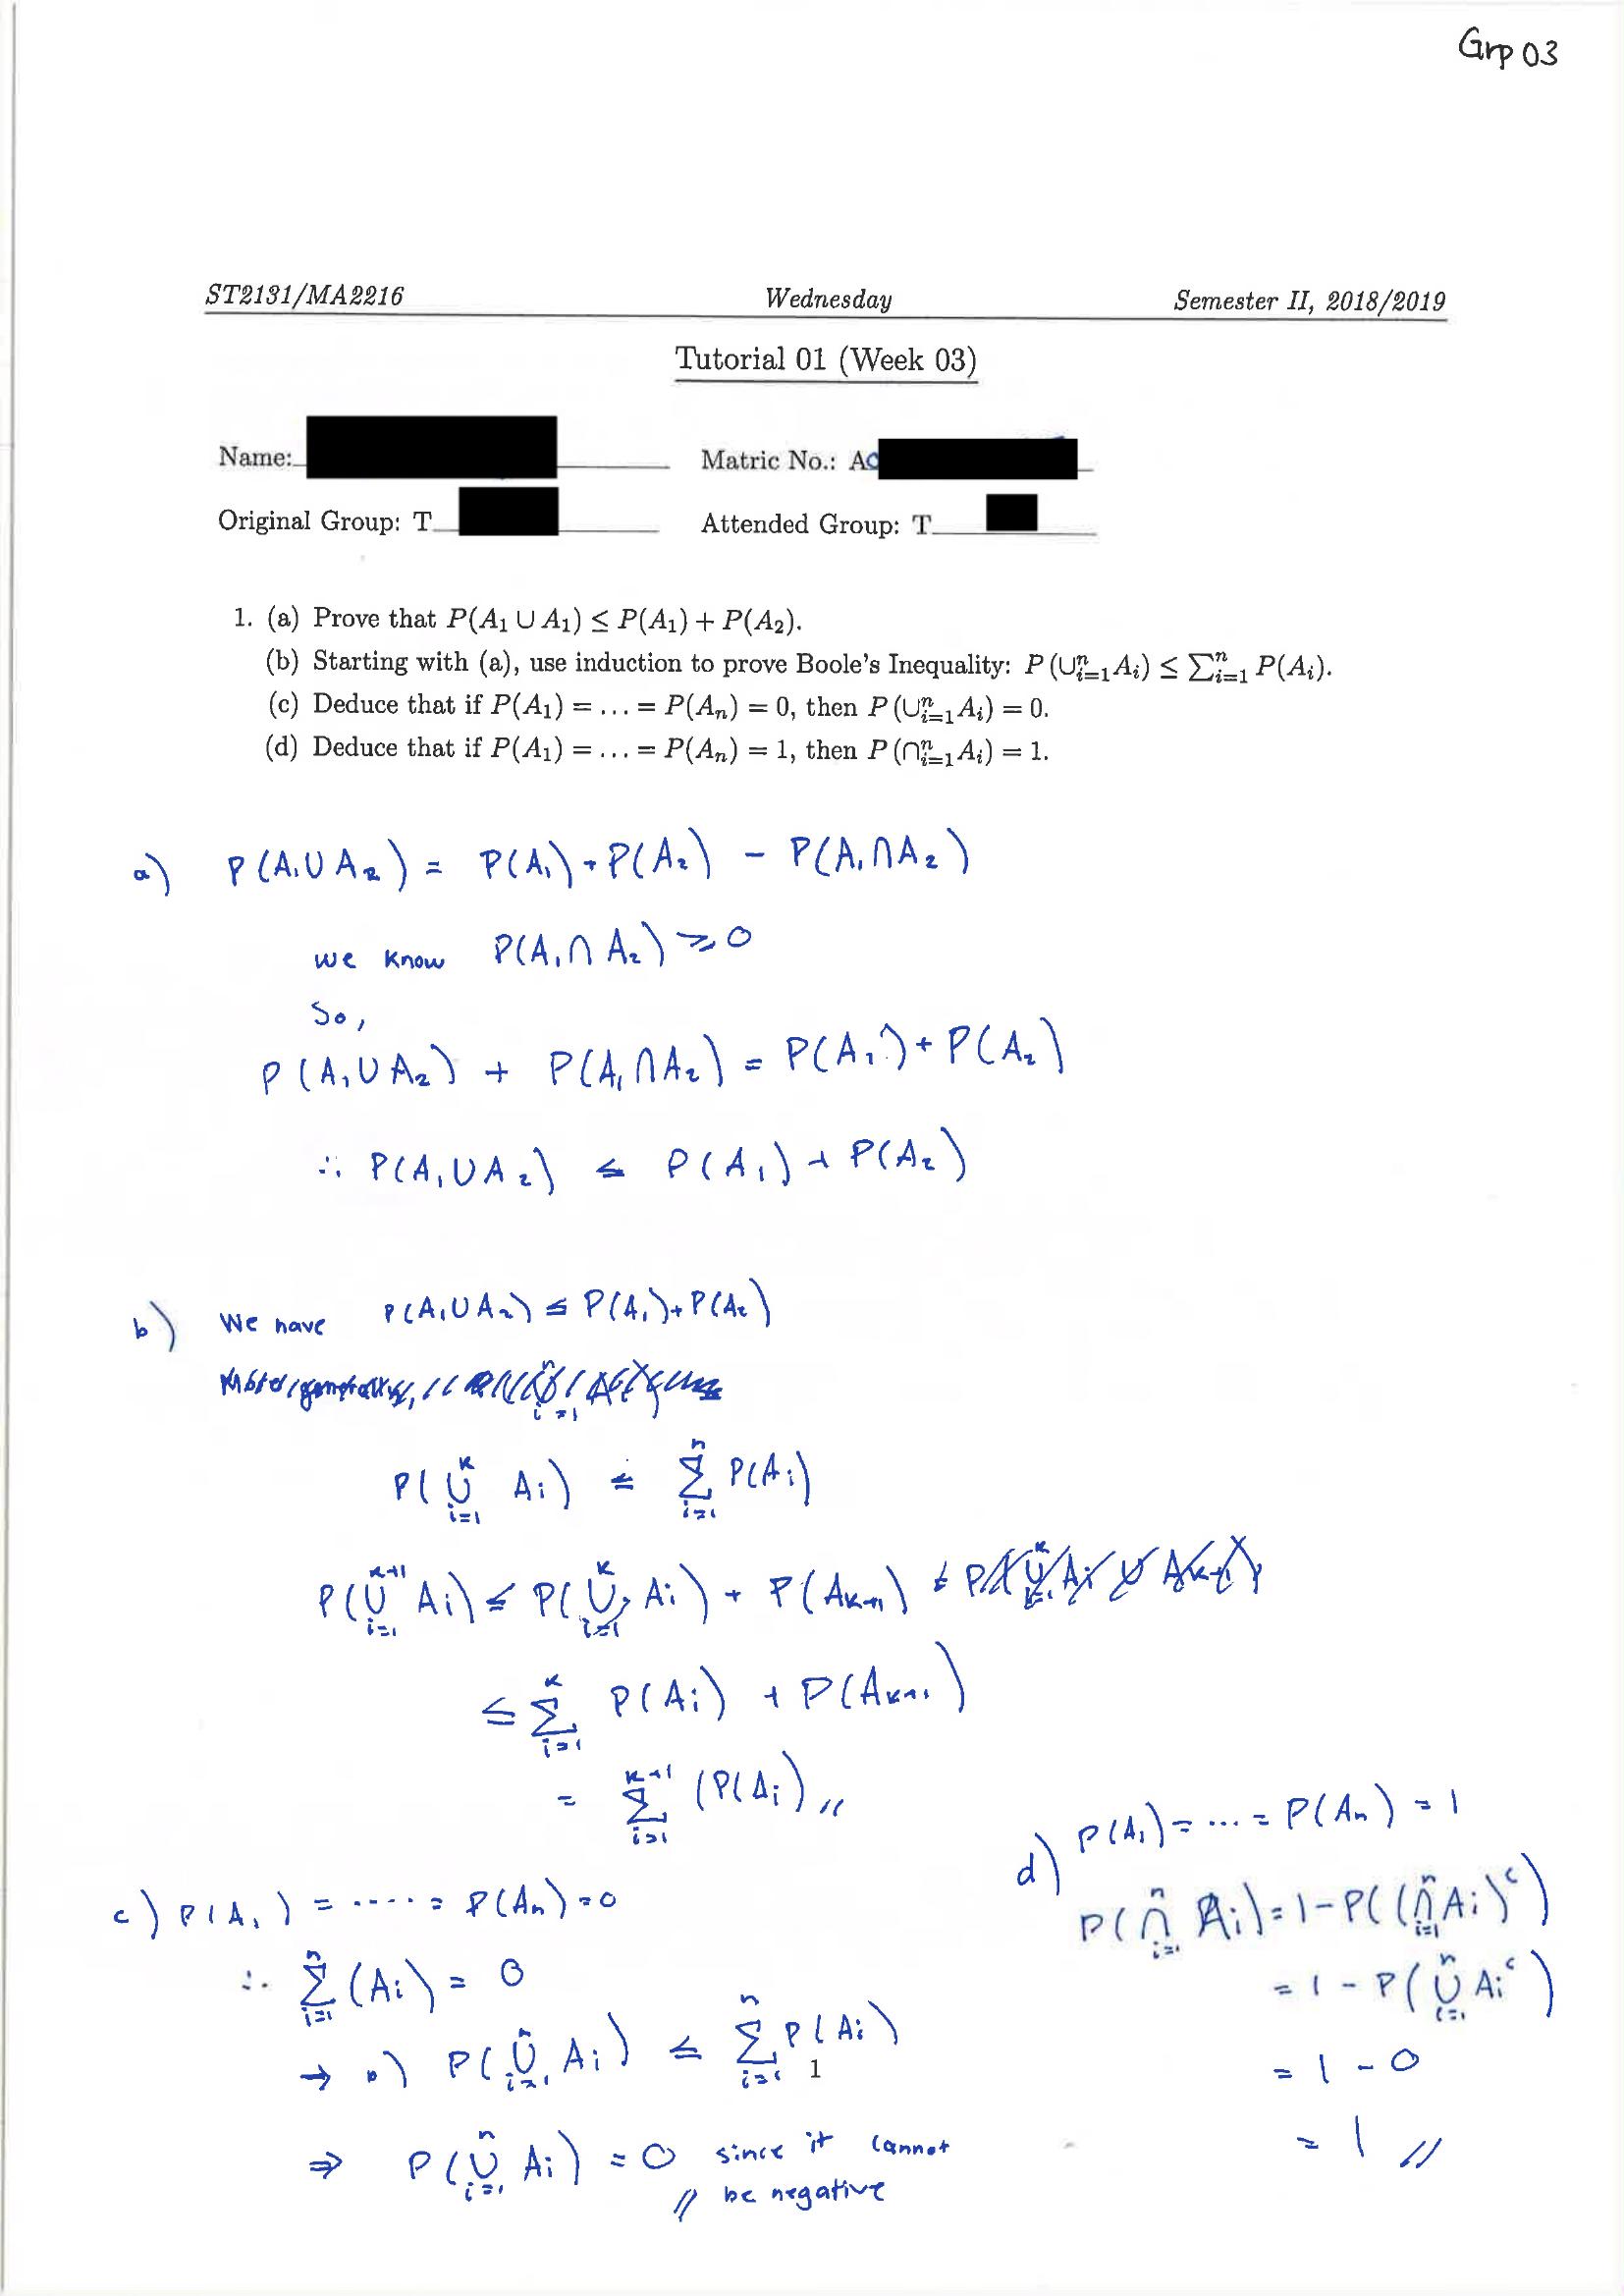 Grp 03
ST2131/MA2216 Wednesday Semester II, 2018/2019
Tutorial 01 (Week 03)
Name: Matric No.: A0
Original Group: T Attended Group: T
1. (a) Prove that P(A₁ ∪ A₁) ≤ P(A₁) + P(A₂).
(b) Starting with (a), use induction to prove Boole's Inequality: P (∪ⁿᵢ₌₁Aᵢ) ≤ ∑ⁿᵢ₌₁ P(Aᵢ).
(c) Deduce that if P(A₁) = ... = P(Aₙ) = 0, then P (∪ⁿᵢ₌₁Aᵢ) = 0.
(d) Deduce that if P(A₁) = ... = P(Aₙ) = 1, then P (∩ⁿᵢ₌₁Aᵢ) = 1.
a) P(A₁∪A₂) = P(A₁) + P(A₂) − P(A₁∩A₂)
we know P(A₁∩A₂) ≥ 0
So,
P(A₁∪A₂) + P(A₁∩A₂) = P(A₁) + P(A₂)
∴ P(A₁∪A₂) ≤ P(A₁) + P(A₂)
b) We have P(A₁∪A₂) ≤ P(A₁) + P(A₂)
P(∪ᵏᵢ₌₁ Aᵢ) ≤ ∑ⁿᵢ₌₁ P(Aᵢ)
P(∪ᵏ⁺¹ᵢ₌₁ Aᵢ) ≤ P(∪ᵏᵢ₌₁ Aᵢ) + P(Aₖ₊₁)
≤ ∑ᵏᵢ₌₁ P(Aᵢ) + P(Aₖ₊₁)
= ∑ᵏ⁺¹ᵢ₌₁ (P(Aᵢ) //
c) P(A₁) = ..... = P(Aₙ) = 0
∴ ∑ⁿᵢ₌₁ (Aᵢ) = 0
→ b) P(∪ⁿᵢ₌₁ Aᵢ) ≤ ∑ⁿᵢ₌₁ P(Aᵢ)
⇒ P(∪ⁿᵢ₌₁ Aᵢ) = 0 since it cannot
// be negative
d) P(A₁) = ... = P(Aₙ) = 1
P(∩ⁿᵢ₌₁ Aᵢ) = 1 − P((∩ⁿᵢ₌₁ Aᵢ)ᶜ)
= 1 − P(∪ⁿᵢ₌₁ Aᵢᶜ)
= 1 − 0
= 1 //
1